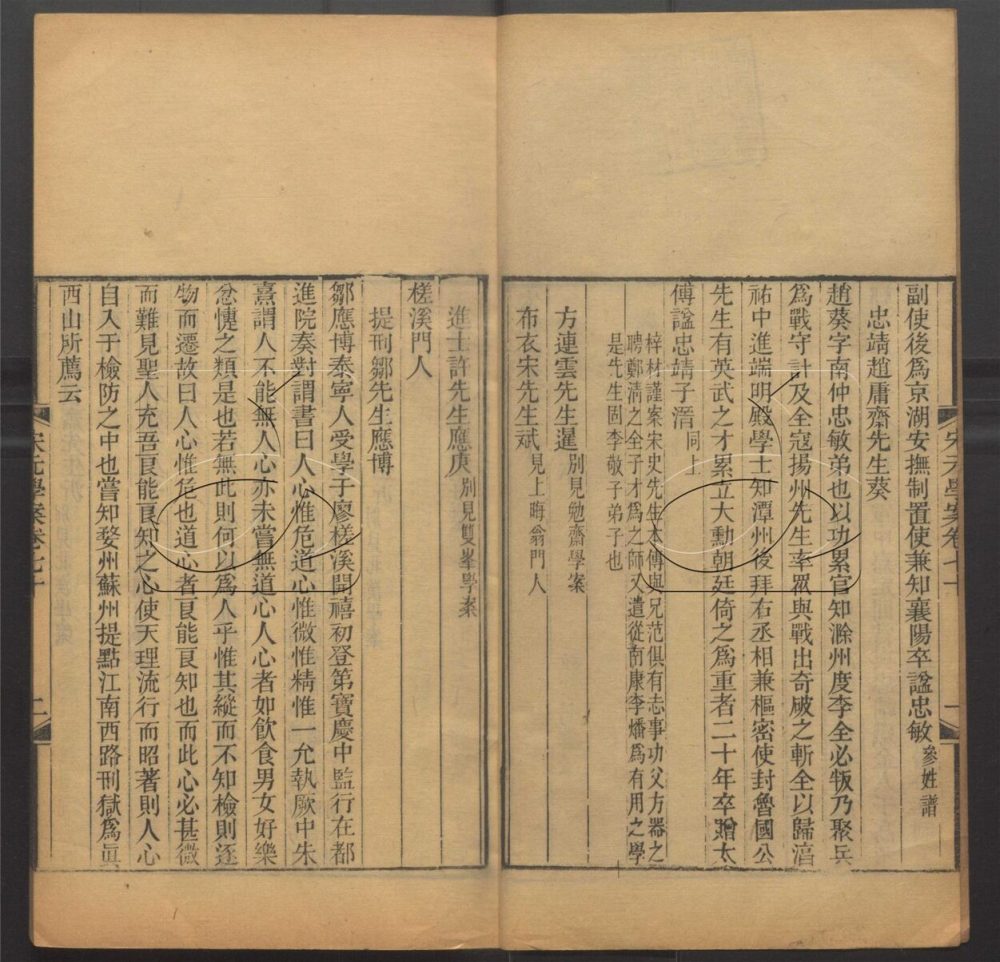 副使後爲京湖安撫制置使兼知襄陽卒諡忠敏參姓譜
忠靖趙庸齋先生葵
趙葵字南仲忠敏弟也以功累官知滁州度李全必叛乃聚兵
爲戰守計及全寇揚州先生率眾與戰出奇破之斬全以歸淳
祐中進端明殿學士知潭州後拜右丞相兼樞密使封魯國公
先生有英武之才累立大勳朝廷倚之爲重者二十年卒贈太
傅諡忠靖子溍同上
梓材謹案宋史先生本傳與兄范俱有志事功父方器之
聘鄭清之全子才爲之師又遣從南康李燔爲有用之學
是先生固李敬子弟子也
方連雲先生暹別見勉齋學案
布衣宋先生斌見上晦翁門人
宋元學案卷七十
一
進士許先生應庚別見雙峯學案
槎溪門人
提刑鄒先生應博
鄒應博泰寧人受學于廖槎溪開禧初登第寶慶中監行在都
進院奏對謂書曰人心惟危道心惟微惟精惟一允執厥中朱
熹謂人不能無人心亦未嘗無道心人心者如飲食男女好樂
忿懥之類是也若無此則何以爲人乎惟其縱而不知檢則逐
物而遷故曰人心惟危也道心者良能良知也而此心必甚微
而難見聖人充吾良能良知之心使天理流行而昭著則人心
自入于檢防之中也嘗知婺州蘇州提點江南西路刑獄爲眞
西山所薦云
宋元學案卷七十
二